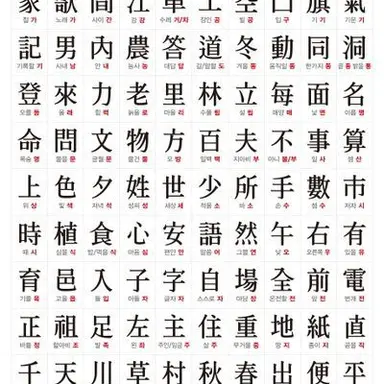 家 歌 間 江 車 工 空 口 旗 氣
집 가 노래 가 사이 간 강 강 수레 거/차 장인 공 빌 공 입 구 기 기 기운 기
記 男 內 農 答 道 冬 動 同 洞
기록할 기 사내 남 안 내 농사 농 대답 답 길/말할 도 겨울 동 움직일 동 한가지 동 골 동 밝을 통
登 來 力 老 里 林 立 每 面 名
오를 등 올 래 힘 력 늙을 로 마을 리 수풀 림 설 립 매양 매 낯 면 이름 명
命 問 文 物 方 百 夫 不 事 算
목숨 명 물을 문 글월 문 물건 물 모 방 일백 백 지아비 부 아니 불/부 일 사 셈 산
上 色 夕 姓 世 少 所 手 數 市
위 상 빛 색 저녁 석 성씨 성 세상 세 적을 소 바 소 손 수 셈 수 저자 시
時 植 食 心 安 語 然 午 右 有
때 시 심을 식 밥/먹을 식 마음 심 편안 안 말씀 어 그럴 연 낮 오 오른쪽 우 있을 유
育 邑 入 子 字 自 場 全 前 電
기를 육 고을 읍 들 입 아들 자 글자 자 스스로 자 마당 장 온전할 전 앞 전 번개 전
正 祖 足 左 主 住 重 地 紙 直
바를 정 할아비 조 발 족 왼 좌 주인/임금 주 살 주 무거울 중 땅 지 종이 지 곧을 직
千 天 川 草 村 秋 春 出 便 平